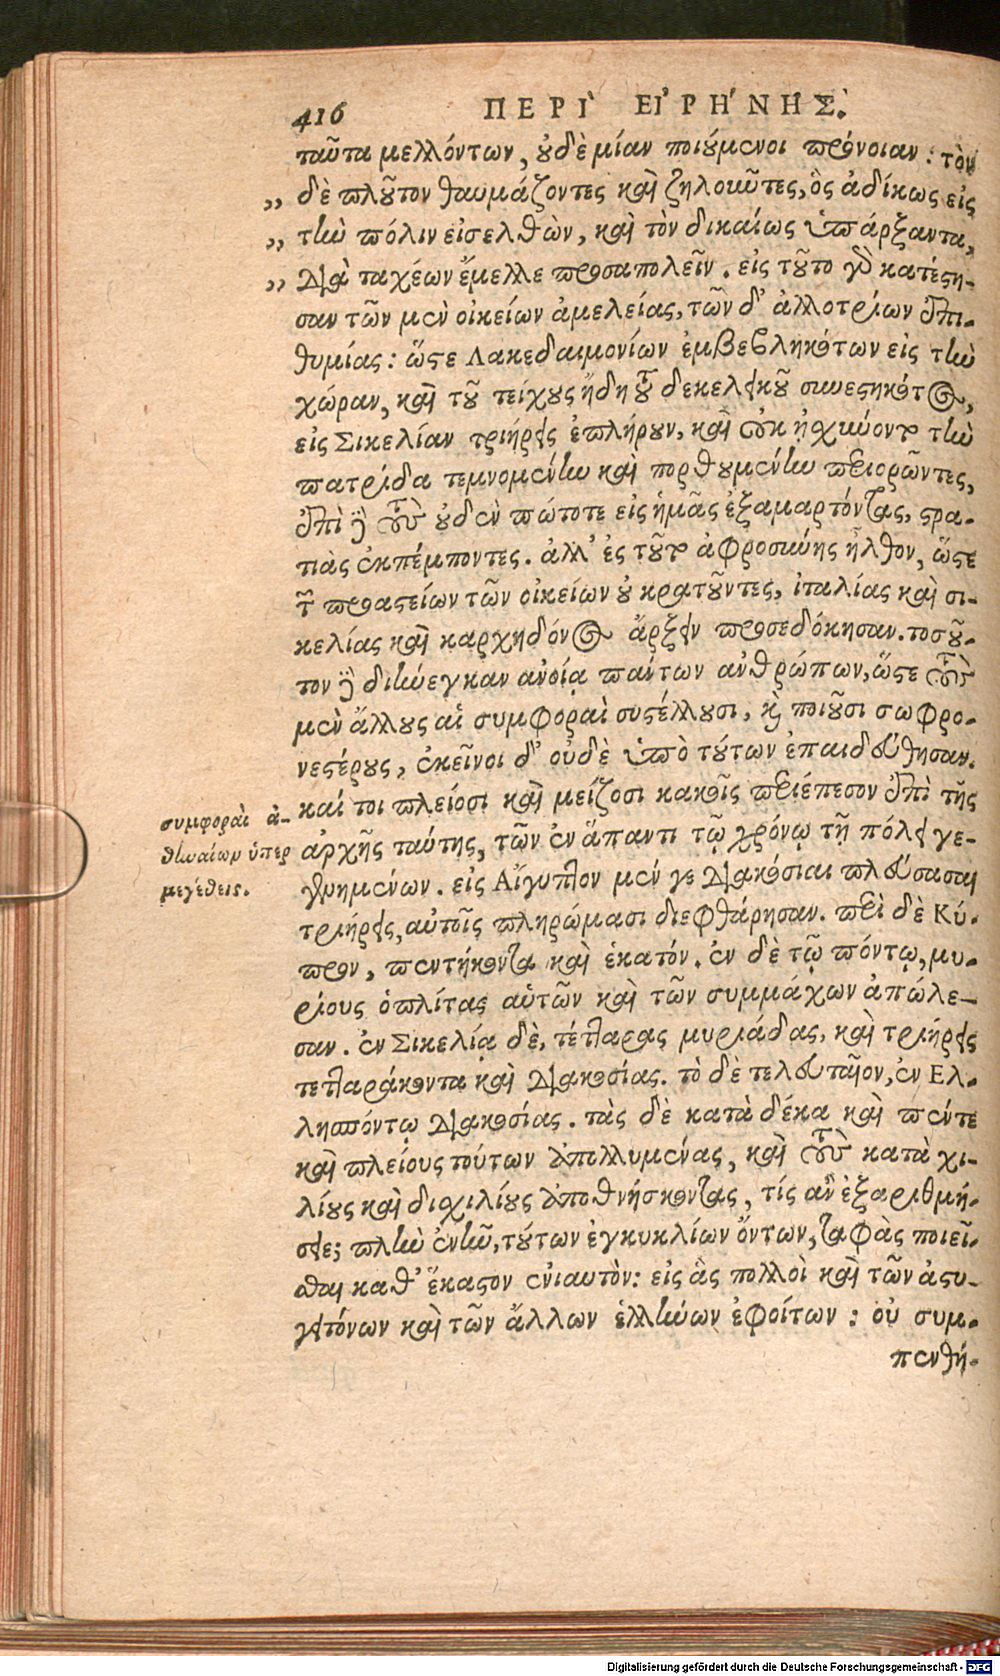 416 ΠΕΡΙ` ΕΙ'ΡΗ'ΝΗΣ.
ταῦτα μελλόντων, οὐδὲ μίαν ποιούμενοι πρόνοιαν : τὸν
,, δὲ πλοῦτον θαυμάζοντες καὶ ζηλοῦντες, ὃς ἀδίκως εἰς
,, τὴν πόλιν εἰσελθὼν, καὶ τὸν δικαίως ὑπάρξαντα,
,, διὰ ταχέων ἔμελλε προσαπολεῖν. εἰς τοῦτο γὰρ κατέστη-
σαν τῶν μὲν οἰκείων ἀμελείας, τῶν δ' ἀλλοτρίων ἐπι-
θυμίας : ὥστε Λακεδαιμονίων ἐμβεβληκότων εἰς τὴν
χώραν, καὶ τοῦ τείχους ἤδη τοῦ δεκελεικοῦ συνεστηκότος,
εἰς Σικελίαν τριήρεις ἐπλήρουν, καὶ οὐκ ᾐσχύνοντο τὴν
πατρίδα τεμνομένην καὶ πορθουμένην περιορῶντες,
ἐπὶ δὲ τοὺς οὐδὲν πώποτε εἰς ἡμᾶς ἐξαμαρτόντας, στρα-
τιὰς ἐκπέμποντες. ἀλλ' ἐς τοῦτο ἀφροσύνης ἦλθον, ὥστε
τῶν προαστείων τῶν οἰκείων οὐ κρατοῦντες, ἰταλίας καὶ σι-
κελίας καὶ καρχηδόνος ἄρξειν προσεδόκησαν. τοσοῦ-
τον δὲ διήνεγκαν ἀνοίᾳ πάντων ἀνθρώπων, ὥστε τοὺς
μὲν ἄλλους αἱ συμφοραὶ συστέλλουσι, καὶ ποιοῦσι σωφρο-
νεστέρους, ἐκεῖνοι δ' οὐδὲ ὑπὸ τούτων ἐπαιδεύθησαν.
καί τοι πλείοσι καὶ μείζοσι κακοῖς περιέπεσον ἐπὶ τῆς
συμφοραὶ ἀ-
θηναίων ὑπερ
μεγέθεις.
ἀρχῆς ταύτης, τῶν ἐν ἅπαντι τῷ χρόνῳ τῇ πόλει γε-
γενημένων. εἰς Αἴγυπτον μέν γε διακόσιαι πλεύσασαι
τριήρεις, αὐτοῖς πληρώμασι διεφθάρησαν. περὶ δὲ Κύ-
προν, πεντήκοντα καὶ ἑκατόν. ἐν δὲ τῷ πόντῳ, μυ-
ρίους ὁπλίτας αὑτῶν καὶ τῶν συμμάχων ἀπώλε-
σαν. ἐν Σικελίᾳ δὲ, τέτταρας μυριάδας, καὶ τριήρεις
τετταράκοντα καὶ διακοσίας. τὸ δὲ τελευταῖον, ἐν Ελ-
λησπόντῳ διακοσίας. τὰς δὲ κατὰ δέκα καὶ πέντε
καὶ πλείους τούτων ἀπολλυμένας, καὶ τοὺς κατὰ χι-
λίους καὶ διχιλίους ἀποθνήσκοντας, τίς ἂν ἐξαριθμή-
σειε; πλὴν ἓν ἦν, τούτων ἐγκυκλίων ὄντων, ταφὰς ποιεῖ-
σθαι καθ' ἕκαστον ἐνιαυτὸν : εἰς ἃς πολλοὶ καὶ τῶν ἀστυ-
γειτόνων καὶ τῶν ἄλλων ἑλλήνων ἐφοίτων : οὐ συμ-
πενθή-
Digitalisierung gefördert durch die Deutsche Forschungsgemeinschaft - DFG